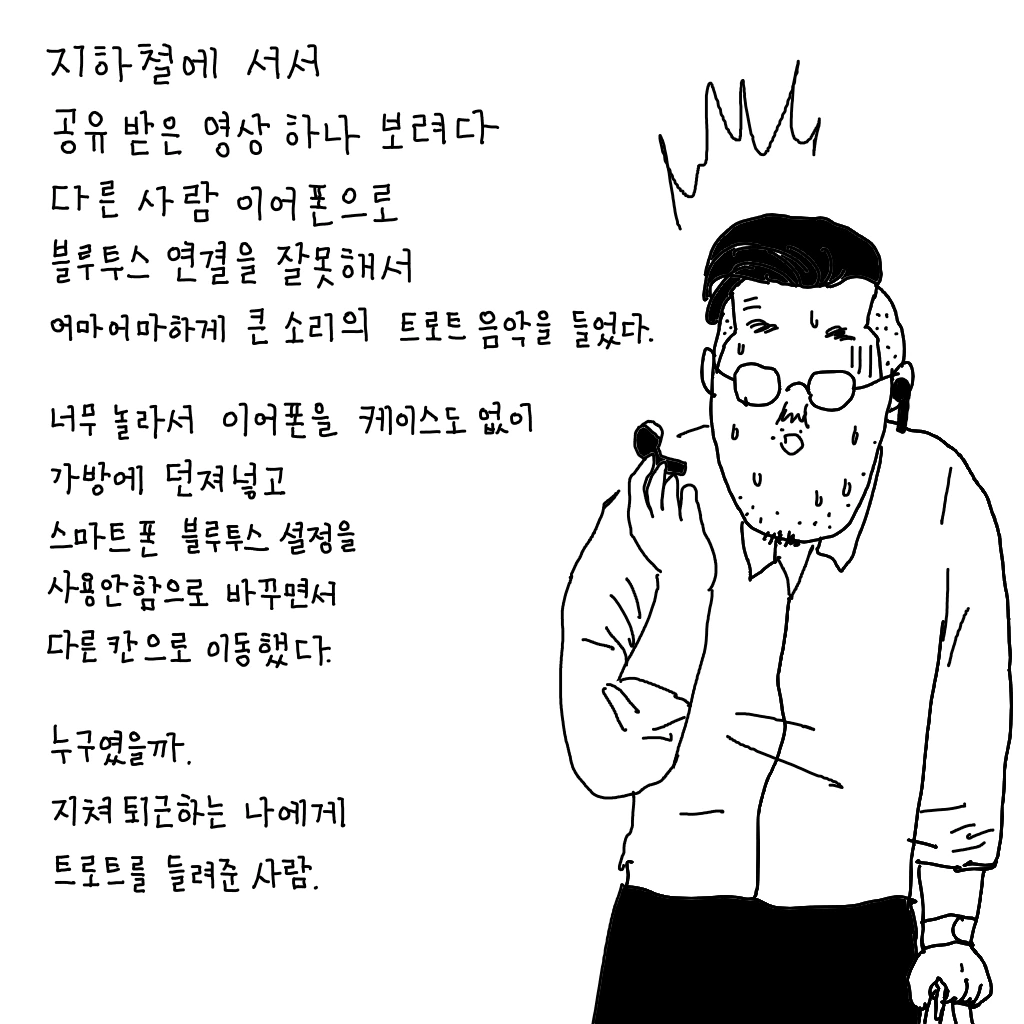 지하철에 서서
공유 받은 영상 하나 보려다
다른 사람 이어폰으로
블루투스 연결을 잘못해서
어마어마하게 큰 소리의 트로트 음악을 들었다.
너무 놀라서 이어폰을 케이스도 없이
가방에 던져넣고
스마트폰 블루투스 설정을
사용안함으로 바꾸면서
다른 칸으로 이동했다.
누구였을까.
지쳐 퇴근하는 나에게
트로트를 들려준 사람.